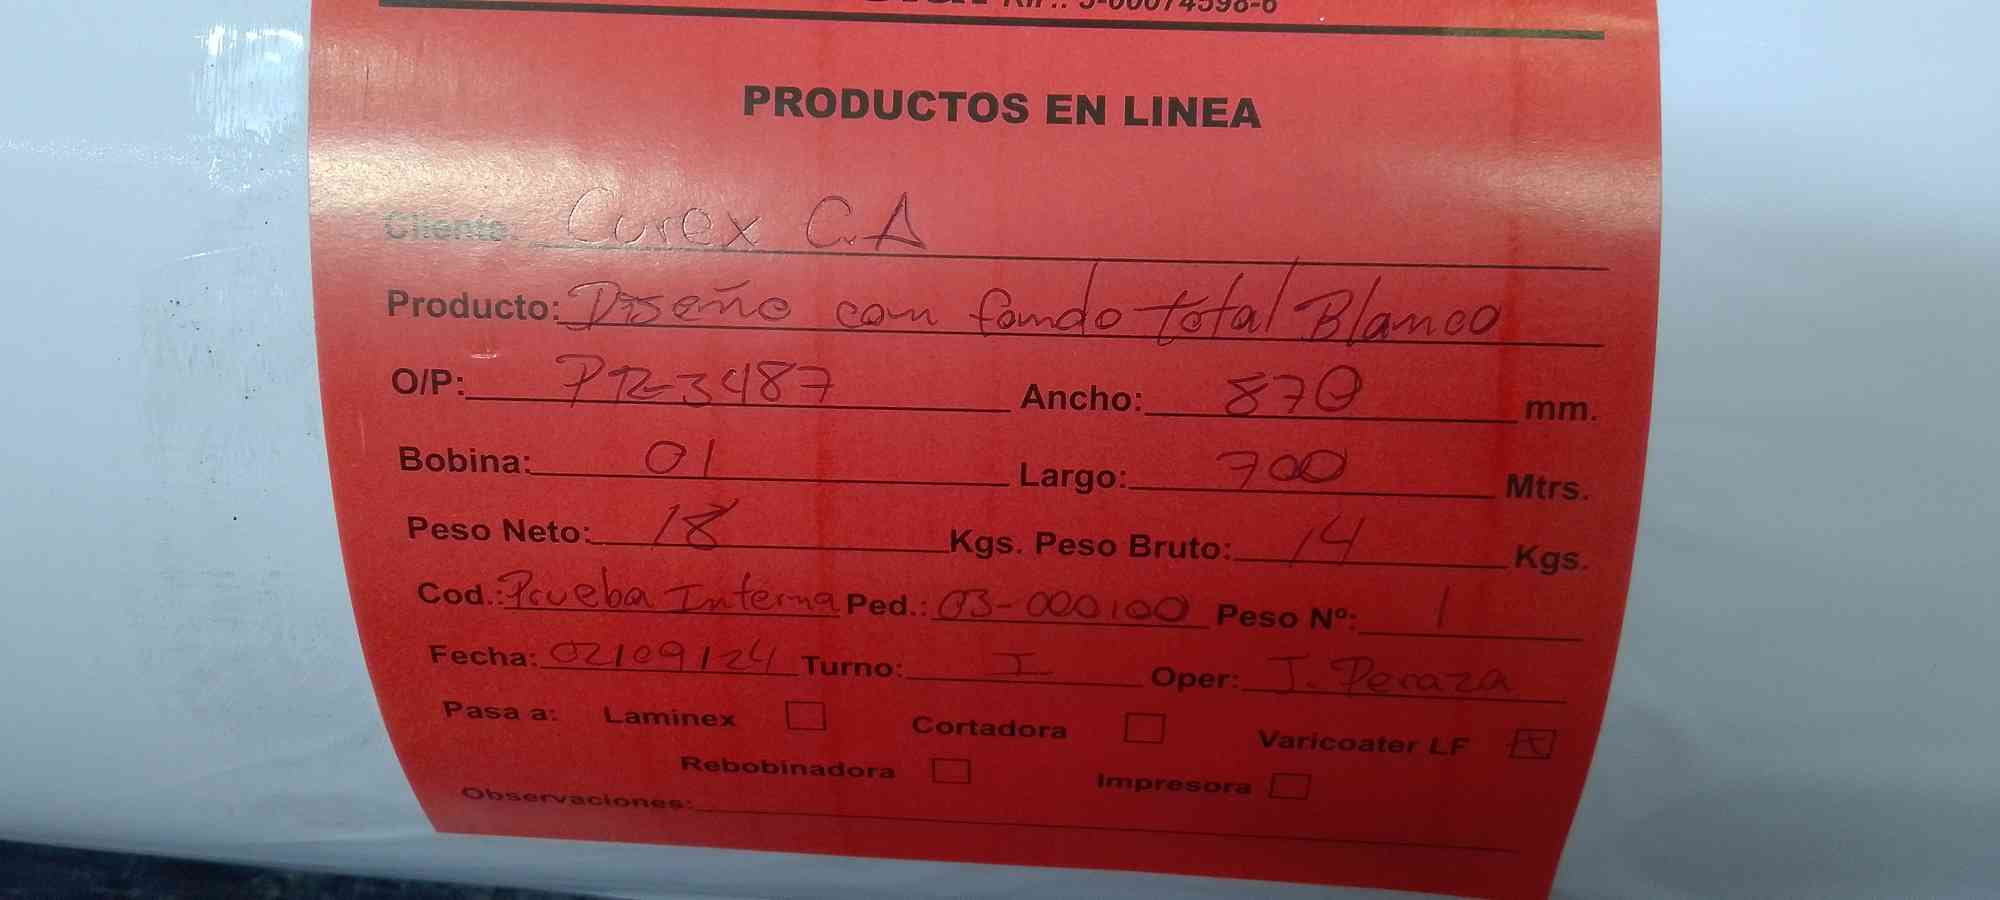 RIF.: J-00074598-6
PRODUCTOS EN LINEA
Cliente: Curex C.A
Producto: Diseño com fomdo total Blamco
O/P: PR-3487 Ancho: 870 mm.
Bobina: 01 Largo: 700 Mtrs.
Peso Neto: 18 Kgs. Peso Bruto: 14 Kgs.
Cod.: Prueba Interna Ped.: 03-000100 Peso Nº: 1
Fecha: 02/09/24 Turno: I Oper: J. Peraza
Pasa a: Laminex Cortadora Varicoater LF X
Rebobinadora Impresora
Observaciones: